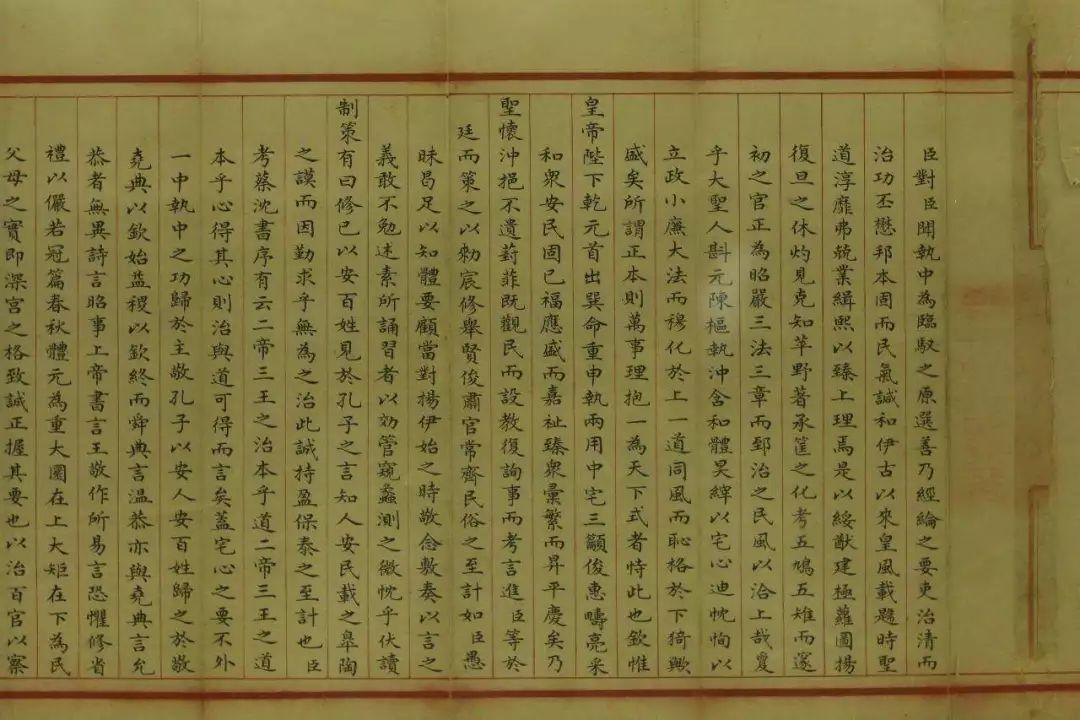 臣對臣聞執中為臨馭之原選善乃經綸之要吏治清而
治功丕懋邦本固而民氣諴和伊古以來皇風載颺時聖
道淳龐弗兢業緝熙以臻上理焉是以綏猷建極蘿圖揚
復旦之休灼見克知苹野著承筐之化考五鳩五雉而邃
初之官正為昭嚴三法三章而郅治之民風以洽上哉敻
乎大聖人斟元陳樞執沖含和體昊緯以宅心迪忱恂以
立政小廉大法而穆化於上一道同風而恥格於下猗歟
盛矣所謂正本則萬事理抱一為天下式者恃此也欽惟
皇帝陛下乾元首出巽命重申執兩用中宅三籲俊惠疇亮采
和衆安民固已福應盛而嘉祉臻衆彙繁而昇平慶矣乃
聖懷沖挹不遺葑菲既觀民而設教復詢事而考言進臣等於
廷而策之以勑宸修舉賢俊肅官常齊民俗之至計如臣愚
昧曷足以知體要顧當對揚伊始之時敬念敷奏以言之
義敢不勉述素所誦習者以効管窺蠡測之微忱乎伏讀
制策有曰修己以安百姓見於孔子之言知人安民載之皋陶
之謨而因勤求乎無為之治此誠持盈保泰之至計也臣
考蔡沈書序有云二帝三王之治本乎道二帝三王之道
本乎心得其心則治與道可得而言矣蓋宅心之要不外
一中執中之功歸於主敬孔子以安人安百姓歸之於敬
堯典以欽始益稷以欽終而舜典言溫恭亦與堯典言允
恭者無異詩言昭事上帝書言王敬作所易言恐懼修省
禮以儼若冠篇春秋體元為重大圜在上大矩在下為民
父母之實即深宮之格致誠正握其要也以治百官以察